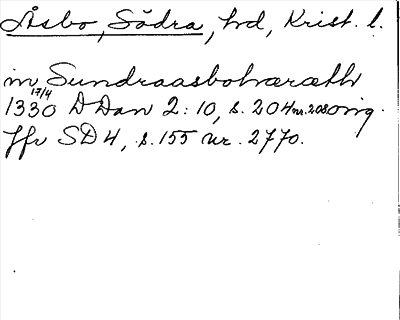 Åsbo, Södra, hd, Krist. l.
in Sundraasbohæræth
17/4
1330 DDan 2:10, s. 204 nr. 208 orig.
Jfr SD 4, s. 155 nr. 2770.